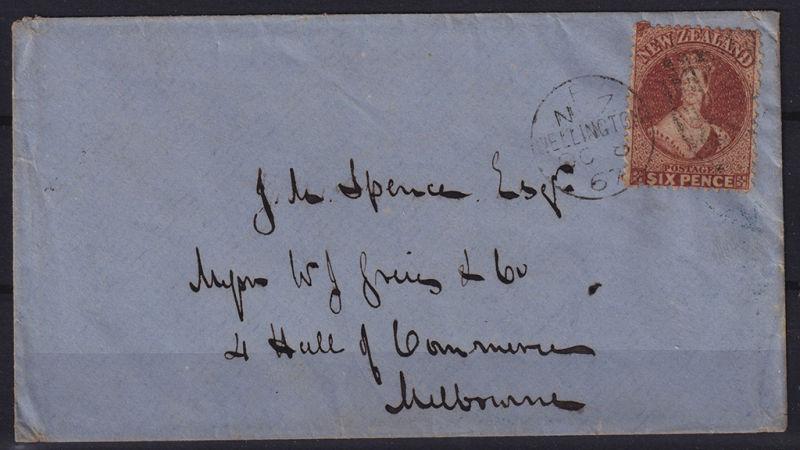 NEW ZEALAND
POSTAGE
SIX PENCE
NZ
WELLINGTON
OC 8
67
J. M. Spence Esqre
W J & Co
4 Hall of Commerce
Melbourne